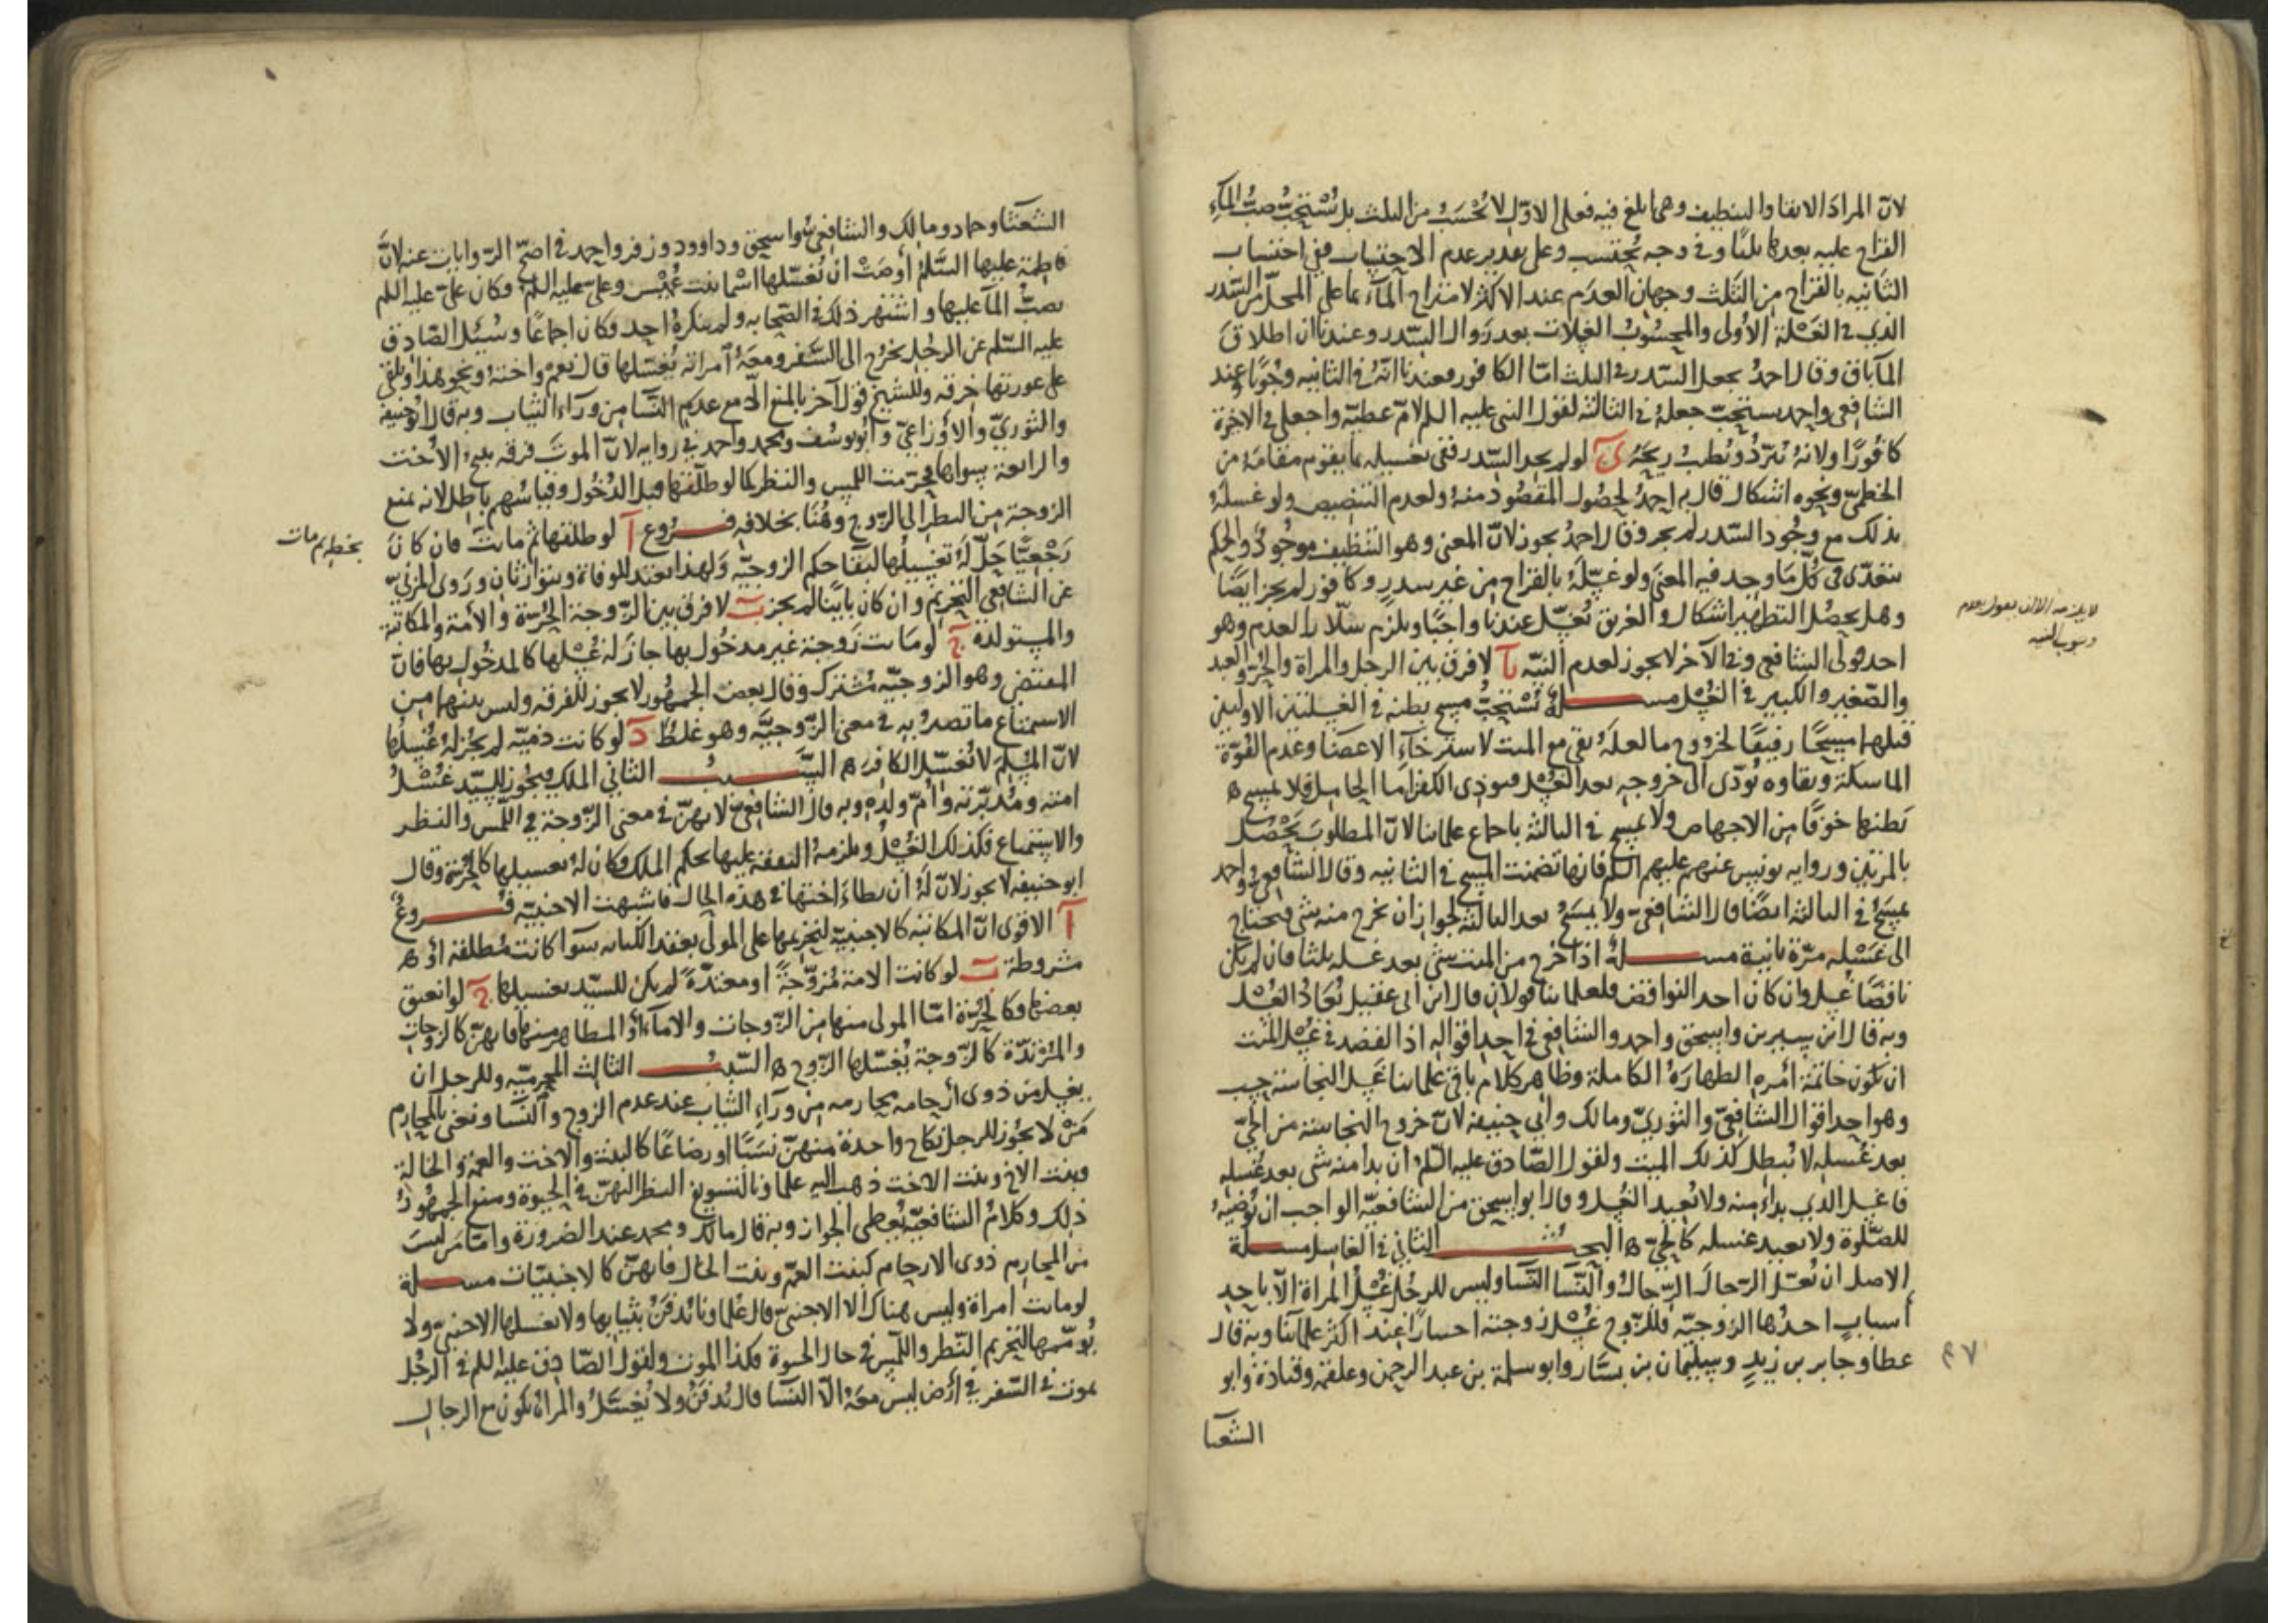 لانّ المرادَ الانقا والتنظيف وهما بلغ فيه فعلى الاوّل لا تُحْسَبُ من الثلث بل تُسْتحبّ صبّ المآءِ
القراح عليه بعدها ثلثًا وفى وجه تحتسب وعلى تقدير عدم الاحتساب ففى احتساب
الثانيه بالقراح من الثلث وجهان العدم عند الاكثر لامتزاج المآء بما على المحلّ من السّدر
الذى فى الغَسْلة الاُولى والمحسُوبُ الغسلات بعد زوال السّدر وعندنا ان اطلاقَ
المآ باق وقال احمدُ يجعل السّدر فى الثلث امّا الكافور فعندنا انّه فى الثانيه وجُوبًا وعند
الشافعى واحمد يستحبّ جعلهُ فى الثالثه لقول النبى عليه السلم لامّ عطيّه واجعلى فى الاخرة
كافُورًا ولانهُ تُبرّدُ وتُطيبُ ريحَهُ ىَ لو لم يجد السّدر ففى تغسيله بما يقوم مقامَهُ من
الخطمىّ ونحوه اشكال قال به احمدُ لحصُول المقصُود منهُ ولعدم التنصيص ولو غسلهُ
بذلك مع وجُود السّدر لم يجز وقال احمدُ يجوز لانّ المعنى وهو التنظيف موجُودٌ والحكم
يتعدّى فى كلّ مَا وجد فيه المعنى ولو غسّلهُ بالقراح من غير سدرٍ وكافُور لم يجز ايضًا
وهل يحصُل التطهير اشكال والغرىق تُغسّل عندنا واجبًا وىلزم سلّار العدم وهو
احد قولى الشافعى وفى الآخر لا يجوز لعدم النيّه ىآ لا فرق بين الرجل والمراة والحُرّ والعبد
والصّغير والكبير فى الغُسْل مسـلة تُسْتحبُّ مسح بطنه فى الغسلتين الاوليين
قبلهما مسحًا رفيقًا لخروج ما لعلهُ بقى مع الميت لاسترخآءِ الاعضا وعدم القُوّة
الماسكة وبقاوه تُودّى الى خروجه بعد الغُسْل فيوذى الكفن امّا الحامِل فلا يمسح
بَطنها خوفًا من الاجهاض ولا يمسح فى الثالثه باجماع علمائنا لانّ المطلوبَ يَحْصُل
بالمرتين وروايه يونس عنهم عليهم السلم فانها تضمنت المسح فى الثانيه وقال الشافعى واحمد
يمسحُ فى الثالثه ايضًا قال الشافعىّ ولا يمسَحُ بعد الثالثه لجواز ان يخرج منه شى فيحتاج
الى غَسْله مرّة ثانية مسـلهُ اذا خرج من الميت شى بعد غسله ثلثا فان لم يكن
ناقضًا غُسل وان كان احد النواقض فلعلمائنا قولان قال ابن ابى عقيل تُعَادُ الغُسْل
وبه قال ابن سيرين واسحق واحمد والشافعى فى احد اقواله اذ القصد فى غُسل الميّت
ان تكُون خاتمة امره الطهارة الكاملة وظاهر كلام باقى علمائنا غَسل النجاسة حَسب
وهو احد اقوال الشافعىّ والثورىّ ومالك وابى حنيفه لانّ خروج النجاسة من الحىّ
بعد غُسله لا تُبطل كذلك الميت ولقول الصّادق عليه السّلم ان بدا منه شى بعد غُسله
فاغسل الذى بداءَ منه ولا تُعيد الغُسل وقال ابو اسحق من الشافعيّه الواجب ان تُوضيهُ
للصّلوة ولا يعيد غسله كالحىّ البحـث الثانى فى الغاسِل مسـلة
الاصل ان تُغسّل الرّجالَ الرّجالُ والنّسآ النّسآ وليس للرجُل غُسْلُ المراة الّا باحد
أسبابٍ احدُها الزوجيّه فللزّوج غُسْل زوجته اختيارًا عند اكثر علمآئنا وبه قال
عطا وجابر بن زيدٍ وسليمان بن يسَار وابو سلمة بن عبد الرحمن وعلقمه وقتادة وابو
الشعثا
لا يلزمه الا ان يقول بعدم
وجوب النيه
٩٧
الشعثآ وحماد ومالك والشافعى واسحق وداوود وزفر واحمد فى اصحّ الرّوايات عنه لانّ
فاطمة عليها السّلم أوصَتْ ان تُغسّلها اسْما بنت عُمَيْس وعلىّ عليه السلم وكان علىّ عليه السلم
يصبُّ المآ عليها واشتهر ذلك فى الصّحابه ولم ينكرهُ احد فكان اجماعًا وسُئِل الصّادق
عليه السّلم عن الرجُل يخرُج الى السّفر ومعهُ امراته يُغسّلها قال نعمْ واخته ونحو هذا وتلقى
على عورتها خرقه وللشيخ قول آخر بالمنع الّا مع عدم النّسآ من ورآء الثياب وبه قال ابو حنيفه
والثورىّ والاوزاعىّ وابو يوسف ومحمد واحمد فى روايه لانّ الموت فرقه تبيح الاُخت
والرابعة سواها فحرّمت اللمس والنظر كما لو طلّقها قبل الدُخُول وقياسُهم باطل لانه يمنع
الزوجة من النظر الى الزوج وهُنَا بخلافه فـروع آ لو طلقها ثم ماتت فان كانَ
رَجْعيًّا حَلّ لهُ تغسيلُها لبقآ حكم الزوجيّه ولهذا تعتد للوفاة ويتوارثان وروى المزنىّ
عن الشافعى التحريم وان كان باينًا لم يجز بَ لا فرق بين الزّوجة الحُرّة والأمة والمكاتبة
والمستولدة جَ لو ماتت زَوجة غير مدخُول بها جاز لهُ غُسْلها كالمدخُول بها فانّ
المقتضى وهو الزوجيّه مُشترك وقال بعضُ الجمهُور لا يجوز للفرقه وليس بينهما من
الاستمتاع ما تصيرُ به فى معنى الزّوجيَّه وهو غلطٌ دَ لو كانت ذميّه لم يجُز لهُ غُسلُها
لانّ المُسلم لا تُغسّل الكافر السّـببُ الثانى الملك فيجُوز للسيّد غُسْلُ
امته ومُدبّرته وأمّ ولده وبه قال الشافعىّ لانهنّ فى معنى الزّوجة فى اللّمس والنظر
والاستمتاع فكذلك الغُسْل ويلزمهُ النفقة عليها بحكم الملك فكان لهُ تغسيلها كالحُرّة وقال
ابو حنيفه لا يجوز لانّ لهُ ان يطاءَ اختها فى هذه الحال فاشبهت الاجنبيّه فـروعُ
آ الاقوى انّ المكاتبَه كالاجنبيّه لتحريمها على المولى بعقد الكتابه سوآ كانت مُطلقه أو
مشروطة بَ لو كانت الامة مُزوّجةً او معتدّةً لم يكن للسيّد تغسيلها جَ لو انعتق
بعضها فكالحُرّة امّا المولى منها من الزّوجات والامآء أو المظاهر منها فانهنّ كالزوجات
والمُرْتدّة كالزّوجة يُغسّلها الزّوج السّـببُ الثالث المحرميّه وللرجل ان
يغسل من ذوى أرحامه محارمه من ورآءِ الثياب عند عدم الزوج والنّسآ ونعنى بالمحارم
مَنْ لا يجُوز للرجل نكاح واحدة منهنّ نسَبًا او رضاعًا كالبنت والاخت والعمّة والخالة
وبنت الاخ وبنت الاخت ذهب اليه علماونا لتسويغ النظر اليهنّ فى الحيوة ومنع الجمهُورُ
ذلك وكلامُ الشافعيّة يُعطى الجواز وبه قال مالك ومحمد عند الضرورة وامّا مَن ليسَ
من المحارم ذوى الارحام كبنت العمّ وبنت الخال فانهنّ كالاجنبيّات مسـلة
لو ماتت امراة وليس هناك الا الاجنبىّ قال عُلماونا تُدفَنُ بثيابها ولا يغسلها الاجنبىّ ولا
يُومّمها لتحريم النّظر واللّمس فى حال الحيوة فكذا الموت ولقول الصّادق عليه السلم فى الرجُل
يموت فى السّفر فى أرْض ليس معَهُ الّا النسَآ قال يُدفَنُ ولا يُغسَّلُ والمراة تكُون مع الرجال
بخطه ثم ماتت